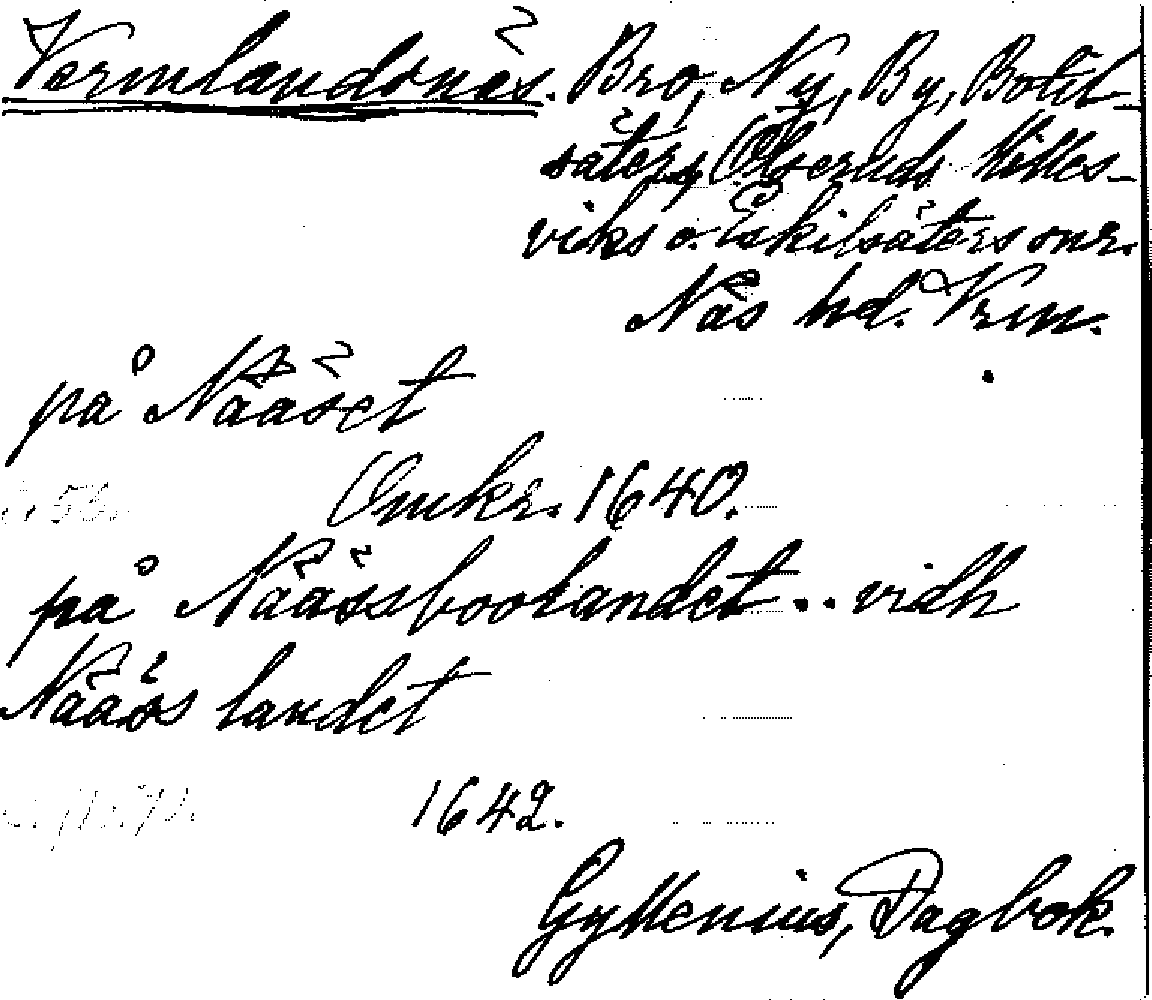 Vermlandsnäs. Bro, Ny, By, Botil-
säters, Ölseruds, Milles-
viks o. Eskilsäters snr.
Näs hd. Vrm.
på Nääset
Omkr. 1640.
på Näässboolandet .. vidh
Nääs landet
1642.
Gyllenius, Dagbok.